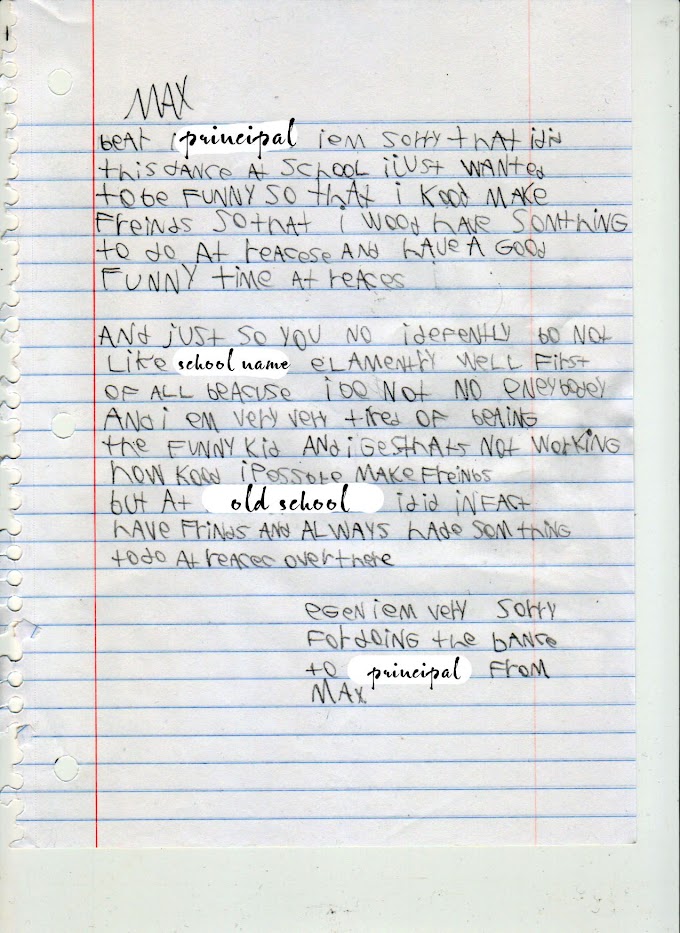 MAX
bear principal iem sorry that idid
this dance At SCHOOL iLUst WANTed
to be FUNNY SO that i Kood MAKE
Freinds so that i wood have SomthiNG
to do At reacese And have A Good
FUNNY time At reaces
And just so you no idefently do Not
Like school name eLAMentry well First
OF ALL beacuse i do Not No eneybodey
And i em very very tired OF beaing
the FUNNY Kid And i Gesthats Not working
how Kood iPossoble MAKE Freinds
but At old school i did iNFAct
have Frinds And ALWAYS hade som thing
to do At reacec over there
eGen iem very sorry
For doing the bance
to principal From
MAX